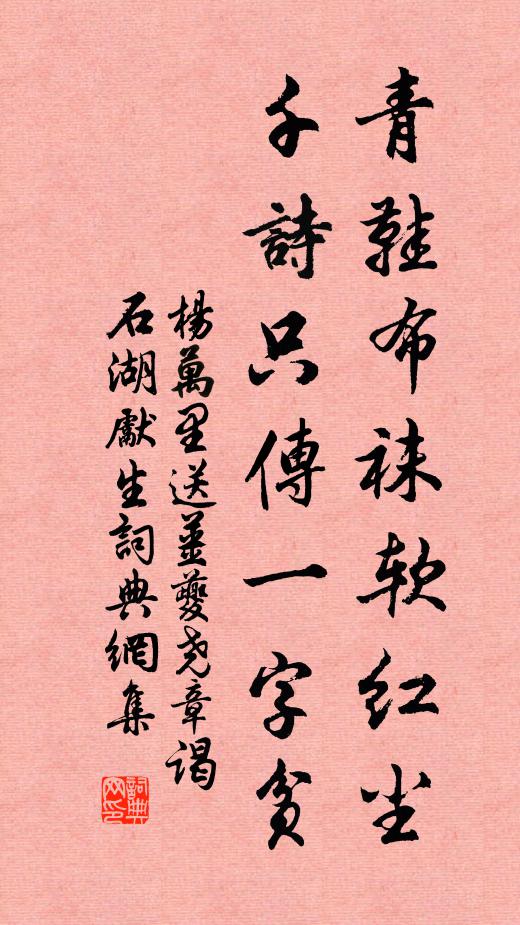 青鞋布袜软红尘
千詩只傳一字贫
楊萬里送薑夔尧章謁
石湖獻生詞典網集
詞典
网印